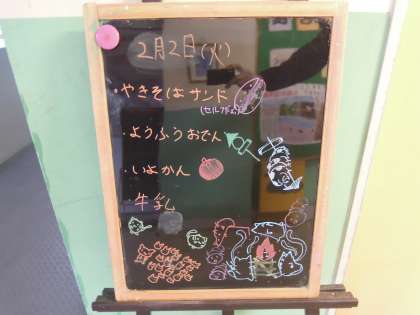 2月2日(火)
・やきそばサンド
(セルフサンド)
・ようふうおでん
・いよかん
・牛乳